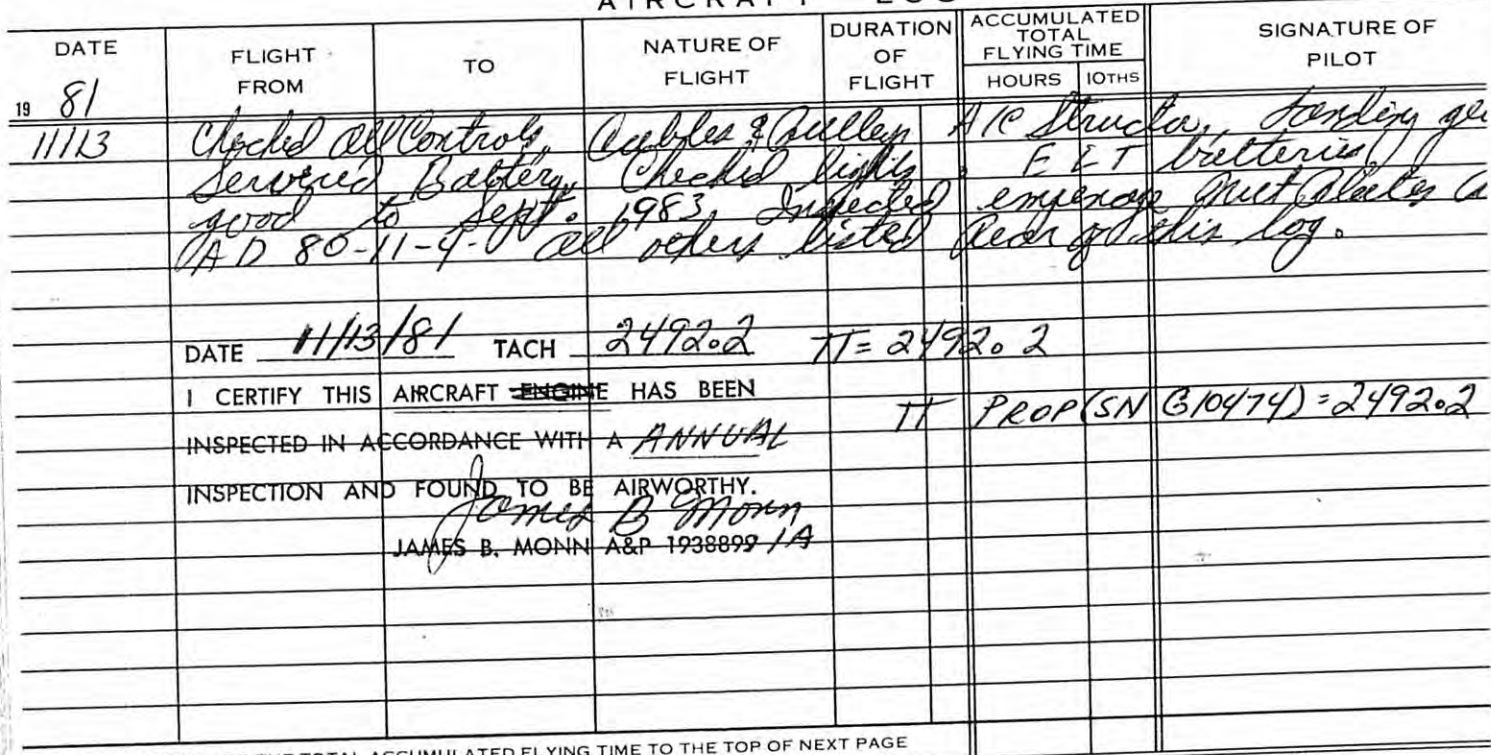 AIRCRAFT LOG
DATE
FLIGHT FROM
TO
NATURE OF FLIGHT
DURATION OF FLIGHT
ACCUMULATED TOTAL FLYING TIME
HOURS 10THS
SIGNATURE OF PILOT
19 81
11/13 Checked all Controls, Cables & A/C Landing
Serviced Battery. Checked lights. ELT batteries
good to Sept. 1983. Inspected nut plates
AD 80-11-4 all others listed rear of this log.
DATE 11/13/81 TACH 2492.2 TT= 2492.2
I CERTIFY THIS AIRCRAFT ENGINE HAS BEEN
TT PROP (SN G10474) = 2492.2
INSPECTED IN ACCORDANCE WITH A ANNUAL
INSPECTION AND FOUND TO BE AIRWORTHY.
James B Monn
JAMES B. MONN A&P 1938899 IA
TOTAL ACCUMULATED FLYING TIME TO THE TOP OF NEXT PAGE